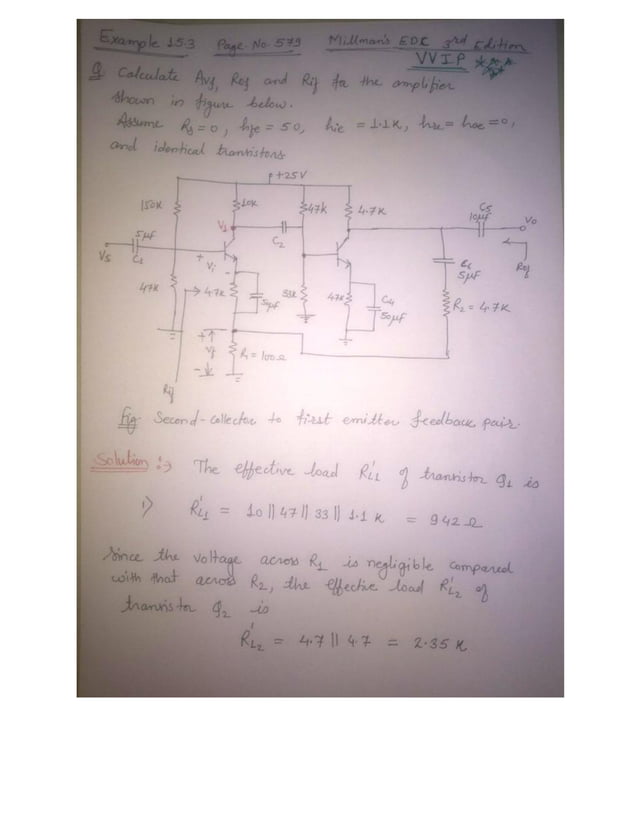 Example 15.3 Page. No. 579 Millman's EDC 3rd Edition
VVIP
Q. Calculate Avf, Rof and Rif for the amplifier
shown in figure below.
Assume Rs = 0, hfe = 50, hie = 1.1K, hre = hoe = 0,
and identical transistors.
+25V
150K 10K 47K 4.7K C5
10μf Vo
V1
5μf C2
Vs C1 + Vi - C6 Rof
5μf
47K 4.7K 5μf 33K 4.7K C4 R2 = 4.7K
50μf
+
Vf R1 = 100Ω
-
Rif
Fig. Second-collector to first emitter feedback pair.
Solution :→ The effective load R'L1 of transistor Q1 is
1) R'L1 = 10 || 47 || 33 || 1.1 K = 942 Ω
Since the voltage across R1 is negligible compared
with that across R2, the effective load R'L2 of
transistor Q2 is
R'L2 = 4.7 || 4.7 = 2.35 K